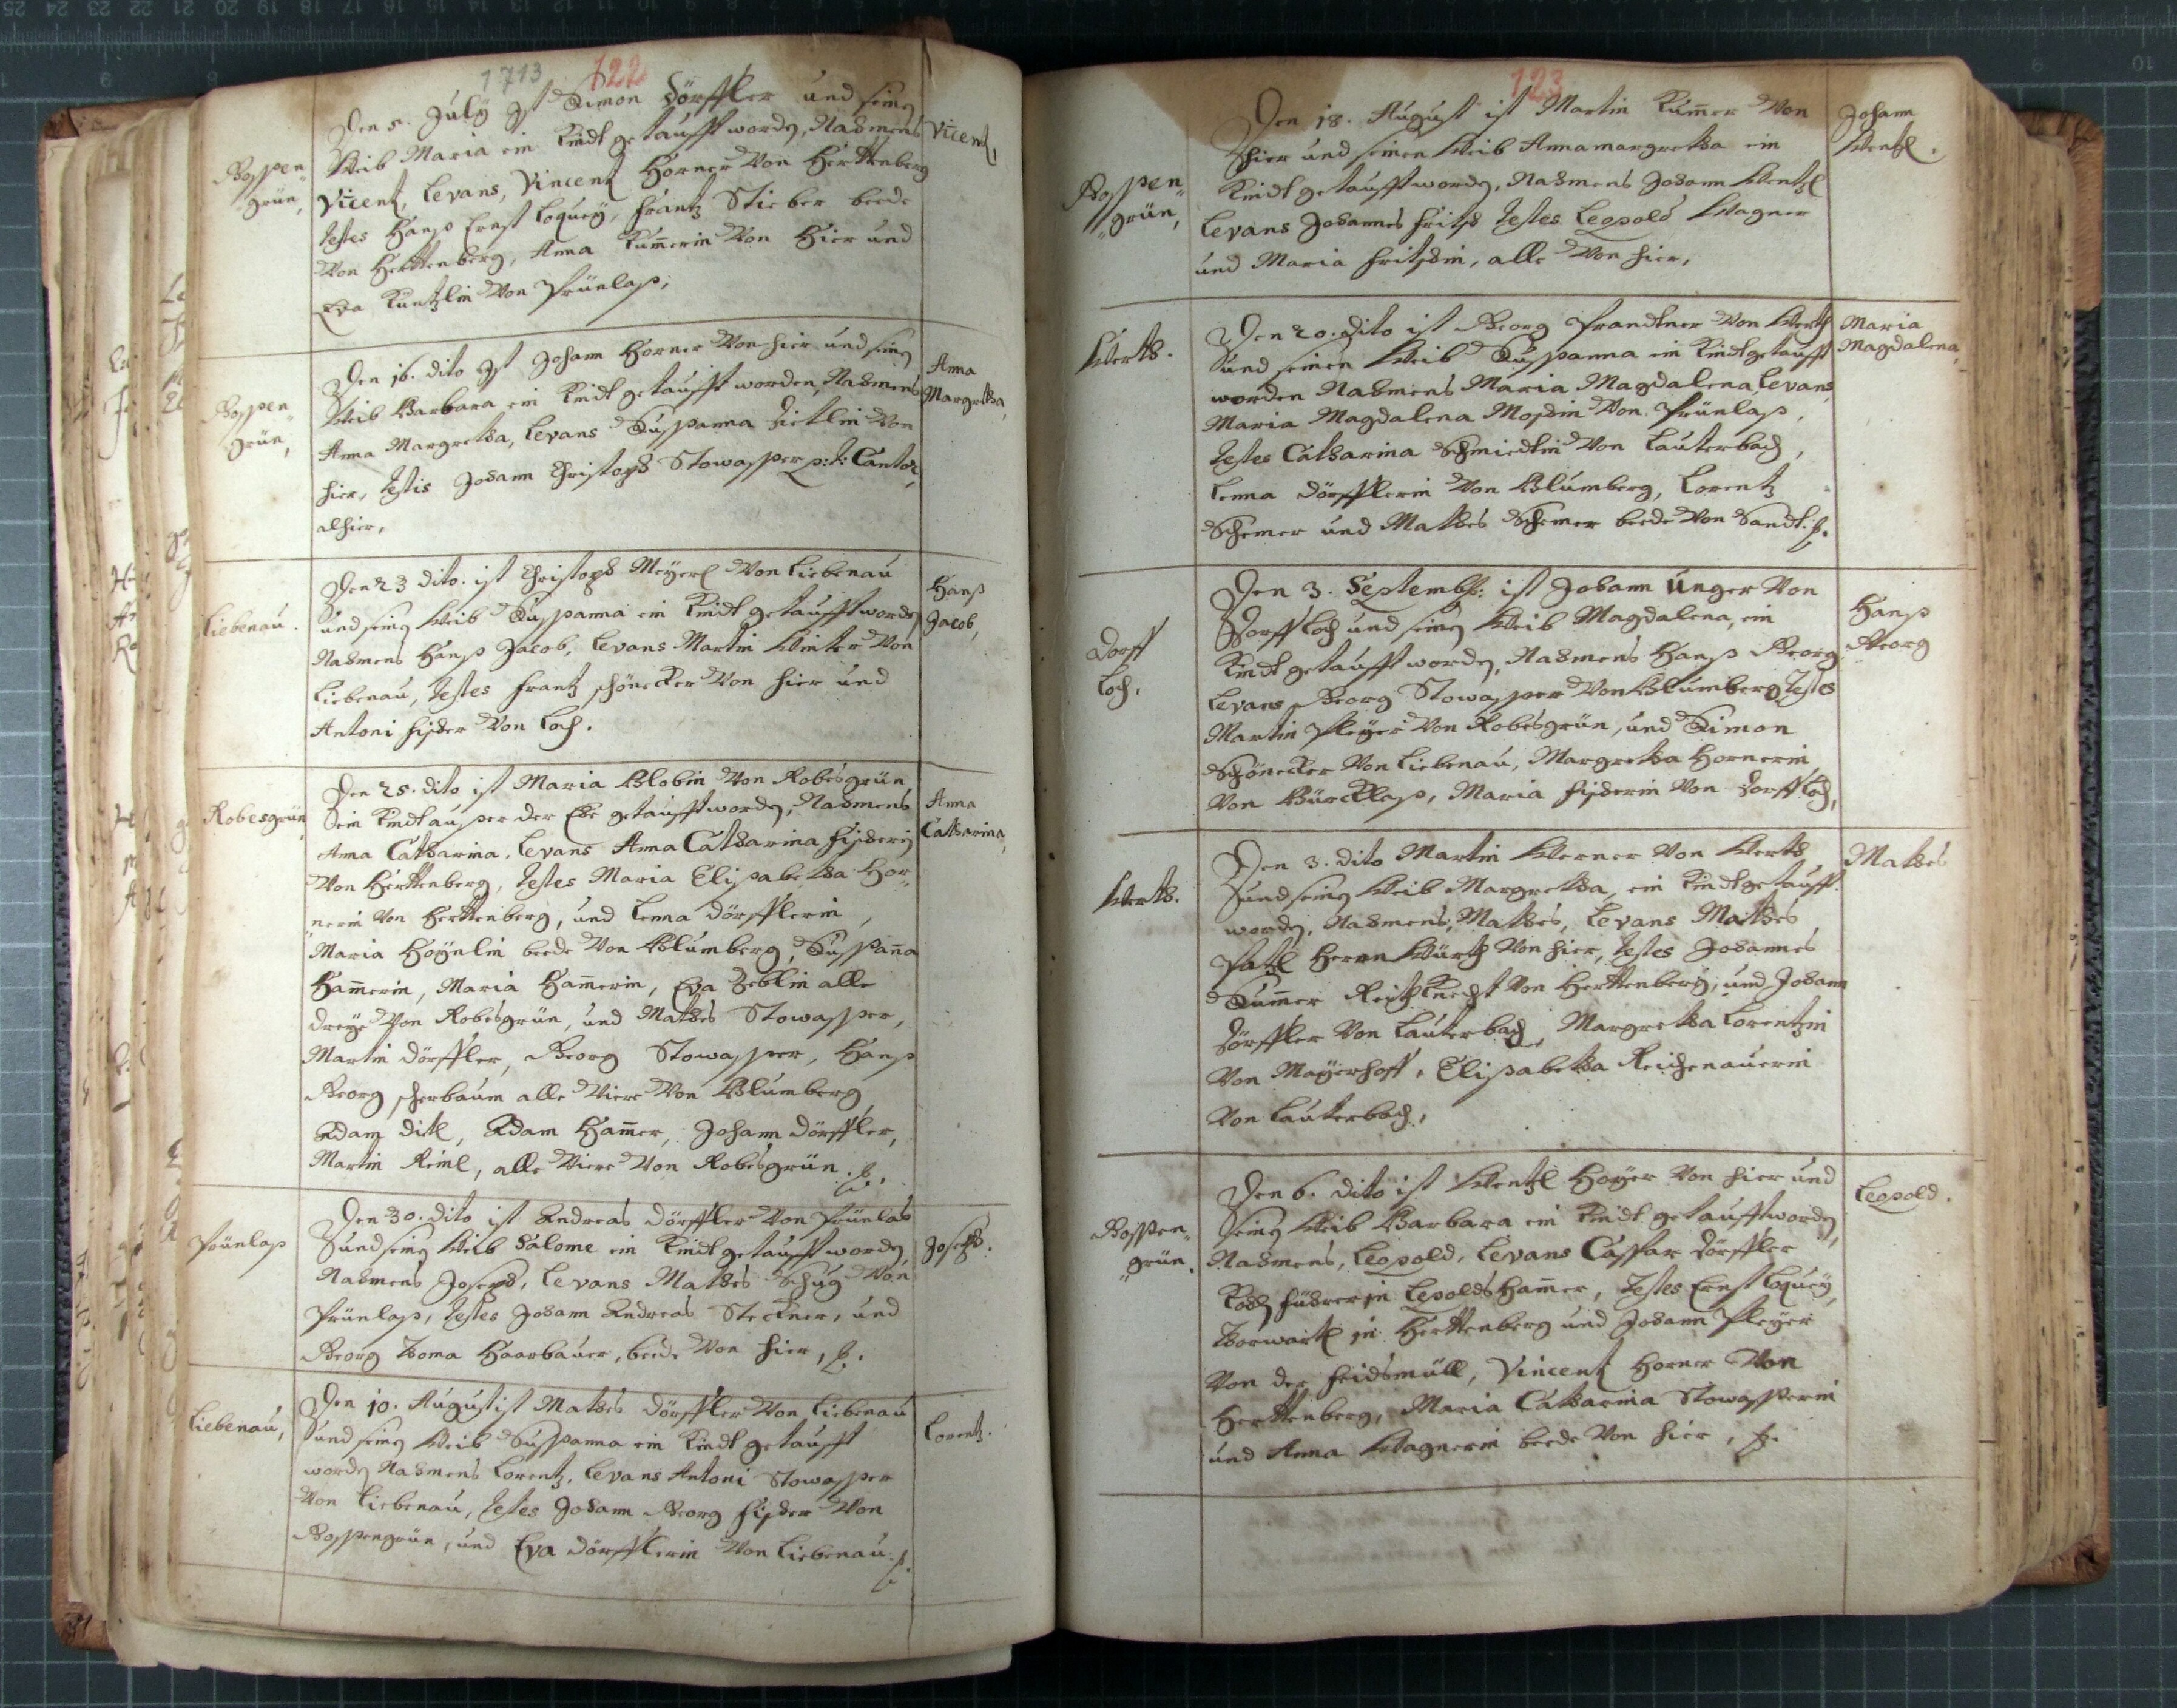 1713 122
Den 5. July Ist Simon Dörffler und seineȝ
Weib Maria ein Kindt getaufft worden, Nahmens
Vicentz, Levans, Vincentz Horner Von Herttenberg
testes Hanß Ernst Loquey, Frantz Stieber beede
Von Herttenberg, Anna Kum̄erin Von Hier und
Eva Küntzlin Von Prünlaß,
Boßpen"
"grün,
Vicentz
Den 16. dito Ist Johann Horner Von hier und seineȝ
Weib Barbara ein Kindt getaufft worden, Nahmens
Anna Margretha, Levans Sußpanna Dietlin Von
hier, testis Johann Christoph Stowasser p: t: Cantor
alhier,
Boßpen"
grün,
Anna
Margretha,
Den 23 dito. ist Christoph Meyerl Von Liebenau
und seineȝ Weib Sußpanna ein Kindt getaufft worden
Nahmens Hanß Jacob, Levans Martin Winter Von
Liebenau, testes Frantz schönecker Von hier und
Antoni Fischer Von Loch.
Liebenau.
Hanß
Jacob,
Den 25. dito ist Maria Blobin Von Robesgrün
Sein Kindt ausser der Ehe getaufft worden, Nahmens
Anna Catharina, Levans Anna Catharina Fischerin
Von Herttenberg, testes Maria Elisabetha Hor"
"nerin Von Herttenberg, und Lenna Dörfflerin,
Maria Hoynlin beede Von Blumberg, Sußpan̄a
Ham̄erin, Maria Ham̄erin, Eva Zeblin alle
dreye Von Robesgrün, und Mathes Stowasser,
Martin Dörffler, Georg Stowasser, Hanß
Georg scherbaum alle Viere Von Blumberg
Adam Ditl, Adam Ham̄er, Johann Dörffler,
Martin Reinl, alle Viere Von Robesgrün.
Robesgrün,
Anna
Catharina,
Den 30. dito ist Andreas Dörffler Von Prünlas
und seineȝ Weib Salome ein Kindt getaufft worden
Nahmens Joseph, Levans Mathes Schug Von
Prünlaß, testes Johann Andreas Steckner, und
Georg Thoma Haarbauer, beede Von hier,
Prünlaß
Joseph.
Den 10. August ist Mathes Dörffler Von Liebenau
und seineȝ Weib Sußpanna ein Kindt getaufft
worden Nahmens Lorentz, Levans Antoni Stowasser
Von Liebenau, testes Johann Georg Fischer Von
Boßpengrün, und Eva Dörfflerin Von Liebenau.
Liebenau,
Lorentz.
123
Den 18. August ist Martin Kum̄er Von
hier und seinen Weib Annamargretha ein
Kindt getaufft worden, Nahmens Johann Wentzl
Levans Johannes Fritsch testes Leopold Wagner
und Maria Fritschin, alle Von hier,
Boßpen"
"grün,
Johann
Wentzl.
Den 20. dito ist Georg Prandtner Von Werth
und seinen Weib Sußpanna ein Kindt getaufft
worden Nahmens Maria Magdalena, Levans
Maria Magdalena Moschin Von Prünlaß,
testes Catharina Schmiedtin Von Lauterbach,
Lenna Dörfflerin Von Blumberg, Lorentz
Schemer und Mathes Schemer beede Von Sandt.
Werth.
Maria
Magdalena,
Den 3. Septembr: ist Johann Unger Von
Dorff Loch und seineȝ Weib Magdalena, ein
Kindt getaufft worden, Nahmens Hanß Georg
Levans Georg Stowasser Von Blumberg testes
Martin Pleyer Von Robesgrün, und Simon
Schönecker Von Liebenau, Margretha Hornerin
Von Bürcklaß, Maria Fischerin Von Dorff Loch,
Dorff
Loch,
Hanß
Georg
Den 3. dito Martin Werner Von Werth,
und seineȝ Weib Margretha, ein Kindt getaufft
worden, Nahmens, Mathes, Levans Mathes
Patzl Herrn Würth Von hier, testes Johannes
Sum̄er Reithknecht Von Herttenberg, und Johann
Dörffler Von Lauterbach, Margretha Lorentzin
Von Mayerhoff, Elisabetha Reichenauerin
Von Lauterbach,
Werth.
Mathes
Den 6. dito ist Wentzl Hoyer Von hier und
seineȝ Weib Barbara ein Kindt getaufft worden,
Nahmens, Leopold, Levans Casspar Dörffler
Kohl führer in Lepoldsham̄er, testes Ernst Loquey,
Thorwartl in Herttenberg und Johann Pleyer
Von der Feidsmüll, Vincentz Horner Von
Herttenberg, Maria Catharina Stowasserin
und Anna Wagnerin beede Von hier,
Boßpen"
"grün.
Leopold.